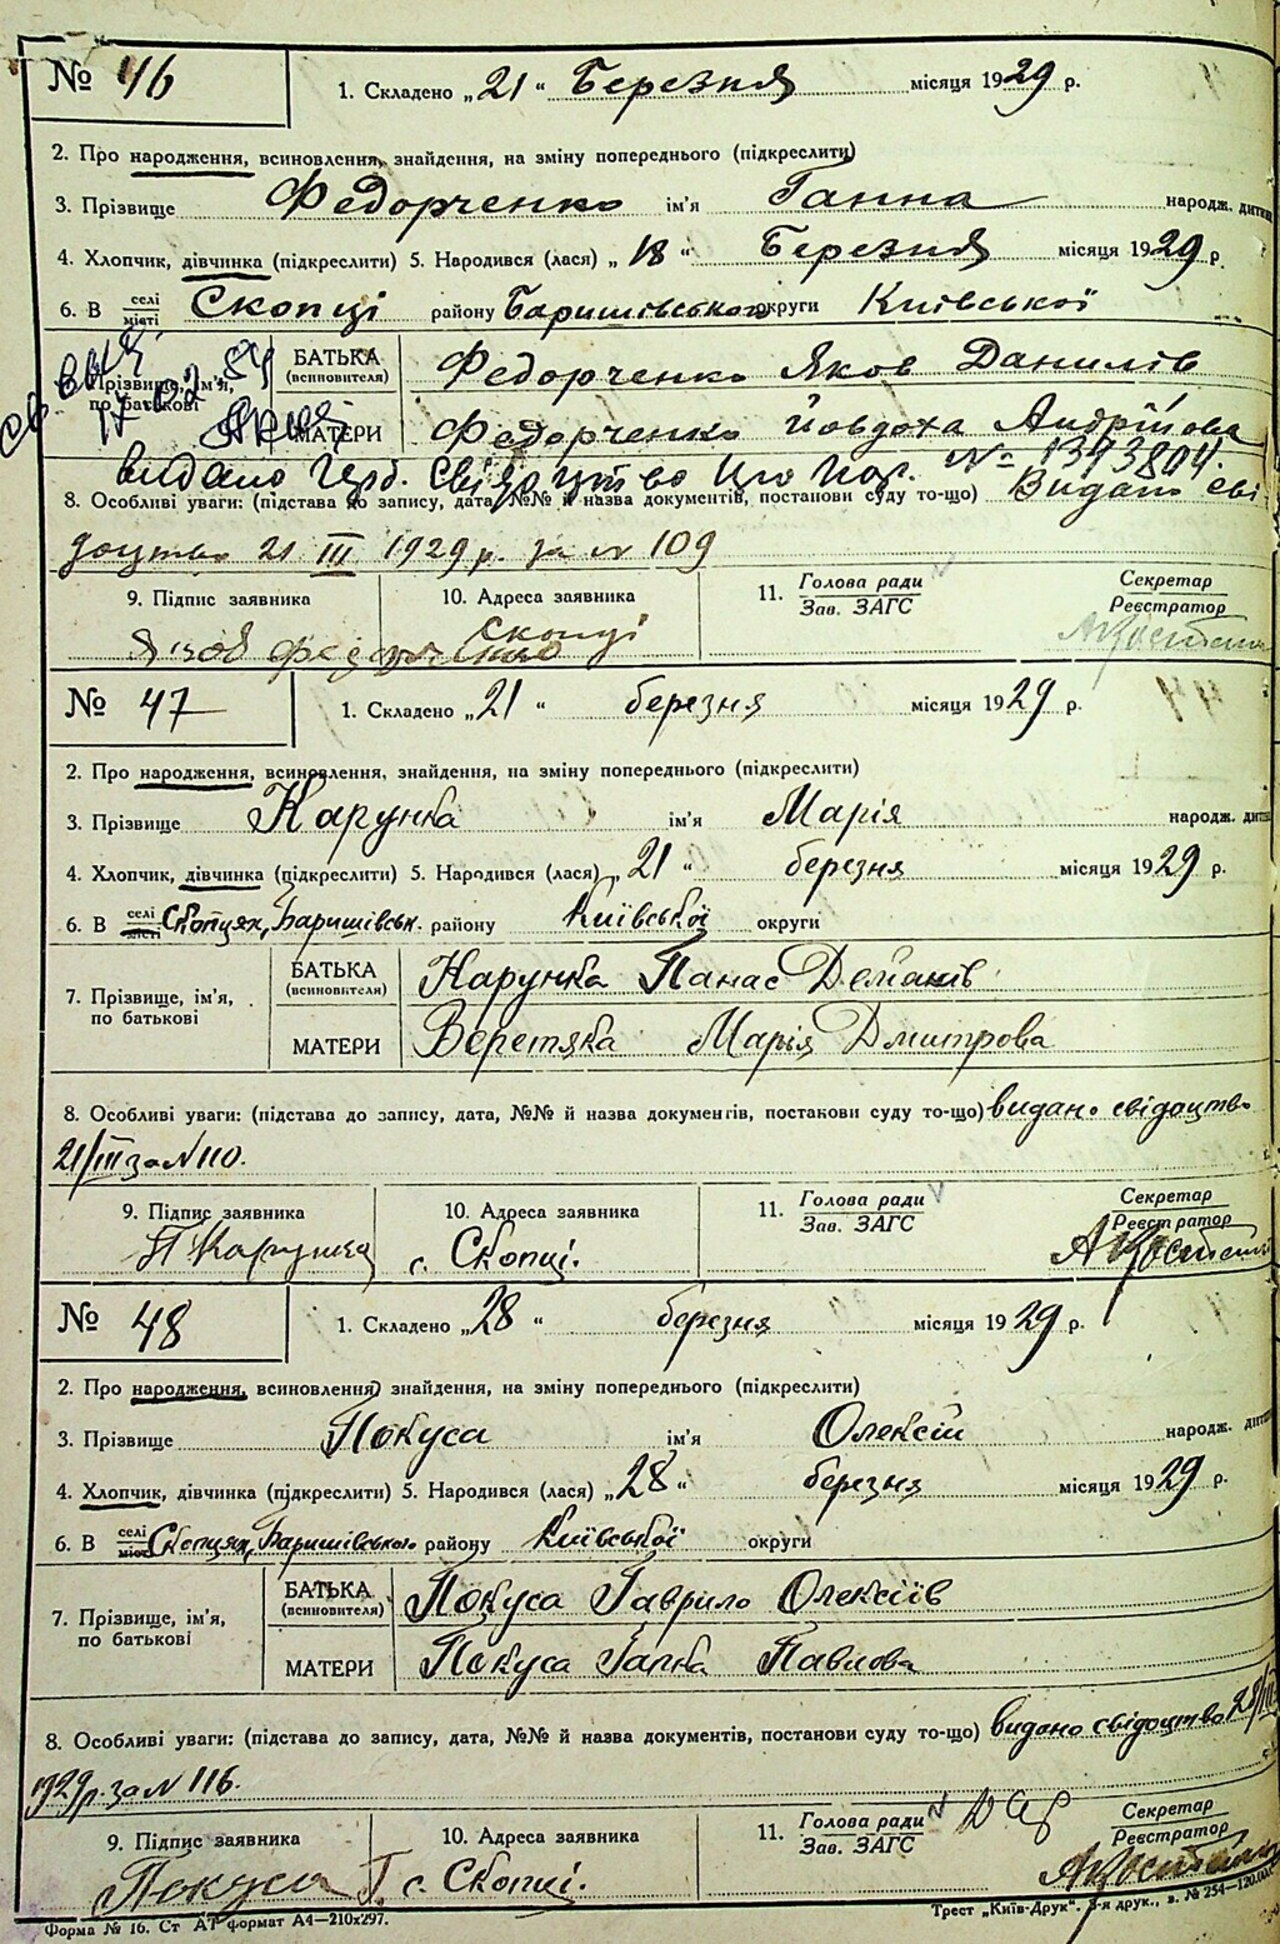 № 46 1. Складено „21“ Березня місяця 1929 р.
2. Про народження, всиновлення, знайдення, на зміну попереднього (підкреслити)
3. Прізвище Федорченко ім'я Ганна народж. дитини
4. Хлопчик, дівчинка (підкреслити) 5. Народився (лася) „18“ Березня місяця 1929 р.
6. В селі/місті Скопці району Баришівського округи Київської
7. Прізвище, ім'я, по батькові
БАТЬКА (всиновителя) Федорченко Яков Данилів
МАТЕРИ Федорченко Йовдоха Андрійова
видано Герб. Свідоцтво № 1343804.
8. Особливі уваги: (підстава до запису, дата, №№ й назва документів, постанови суду то-що) Видано сві-
доцтво 21 III 1929 р. за № 109
9. Підпис заявника 10. Адреса заявника 11. Голова ради Секретар
Зав. ЗАГС Реєстратор
Скопці
№ 47 1. Складено „21“ березня місяця 1929 р.
2. Про народження, всиновлення, знайдення, на зміну попереднього (підкреслити)
3. Прізвище Карунка ім'я Марія народж. дитини
4. Хлопчик, дівчинка (підкреслити) 5. Народився (лася) „21“ березня місяця 1929 р.
6. В селі/місті Скопцях, Баришівськ. району Київської округи
7. Прізвище, ім'я, по батькові
БАТЬКА (всиновителя) Карунка Панас Дем'янів
МАТЕРИ Веретяка Марія Дмитрова
8. Особливі уваги: (підстава до запису, дата, №№ й назва документів, постанови суду то-що) видано свідоцтво
21/III за N 110.
9. Підпис заявника 10. Адреса заявника 11. Голова ради Секретар
Зав. ЗАГС Реєстратор
П Карунка с. Скопці.
№ 48 1. Складено „28“ березня місяця 1929 р.
2. Про народження, всиновлення, знайдення, на зміну попереднього (підкреслити)
3. Прізвище Покуса ім'я Олексій народж. дитини
4. Хлопчик, дівчинка (підкреслити) 5. Народився (лася) „28“ березня місяця 1929 р.
6. В селі/місті Скопцях, Баришівського району Київської округи
7. Прізвище, ім'я, по батькові
БАТЬКА (всиновителя) Покуса Гаврило Олексіїв
МАТЕРИ Покуса Гапка Павлова
8. Особливі уваги: (підстава до запису, дата, №№ й назва документів, постанови суду то-що) видано свідоцтво 28/III
1929 р. за N 116.
9. Підпис заявника 10. Адреса заявника 11. Голова ради Секретар
Зав. ЗАГС Реєстратор
Покуса Г. с. Скопці.
Форма № 16. Ст АТ формат А4—210х297. Трест „Київ-Друк“. 3-я друк., з. № 254—120.000